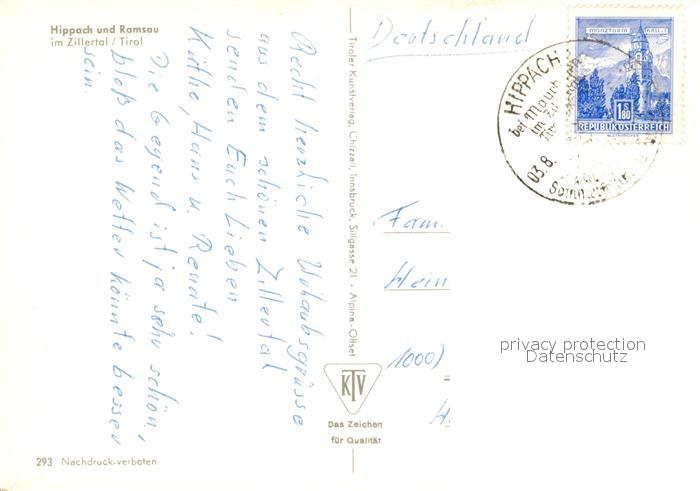 Hippach und Ramsau
im Zillertal / Tirol
Recht herzliche Urlaubsgrüsse
aus dem schönen Zillertal
senden Euch Lieben
Käthe, Hans u. Renate!
Die Gegend ist ja sehr schön,
bloß das Wetter könnte besser
sein.
293 Nachdruck verboten
Tiroler Kunstverlag, Chizzali, Innsbruck, Sillgasse 21 • Alpina-Offset
KTV
Das Zeichen
für Qualität
Deutschland
MÜNZTURM HALL
1.80
REPUBLIK ÖSTERREICH
HIPPACH
bei
im
03.8.
Fam.
Hein
1000
privacy protection
Datenschutz